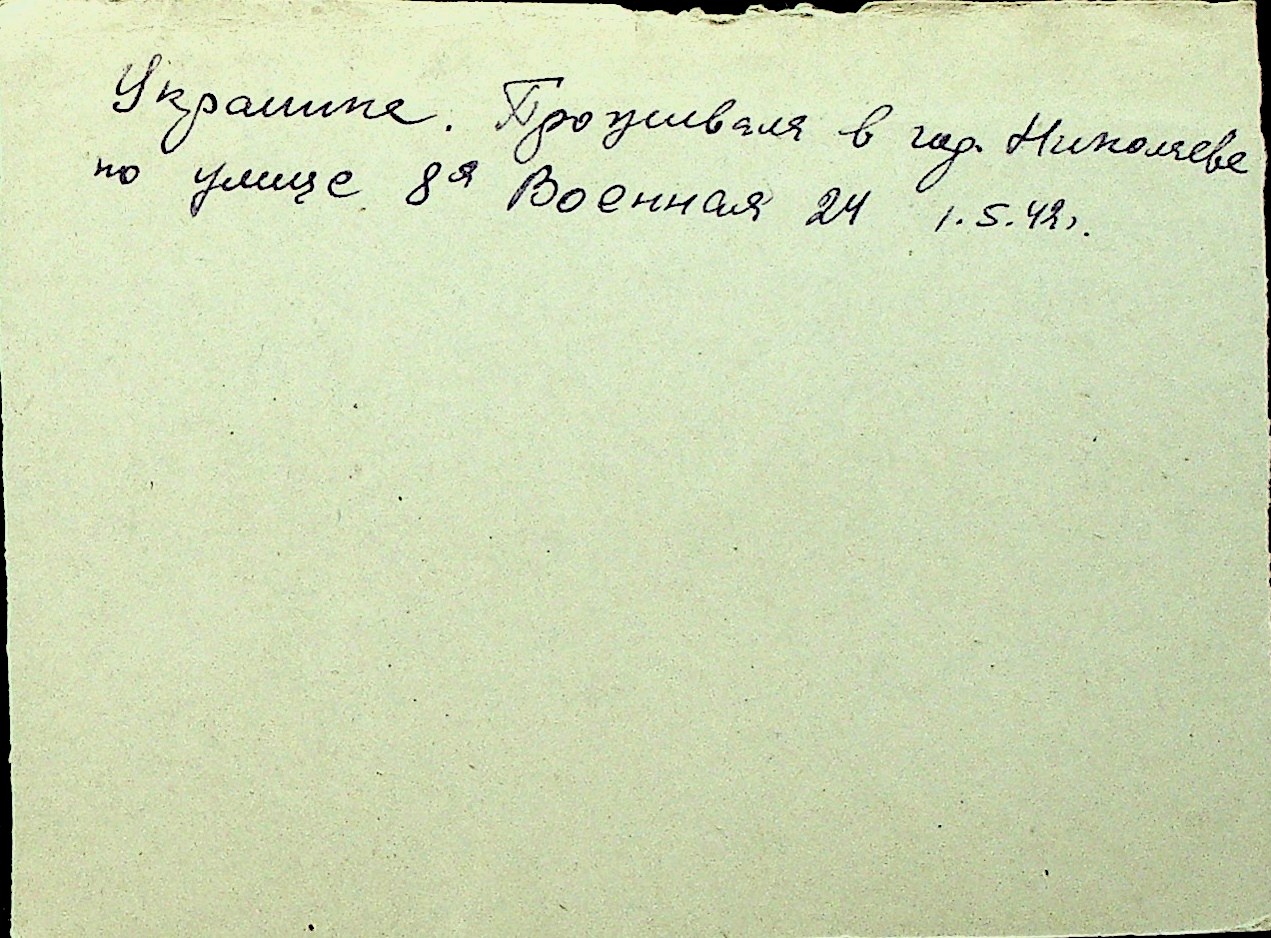 Украинка. Проживала в гор. Николаеве
по улице 8я Военная 24 1.5.42г.